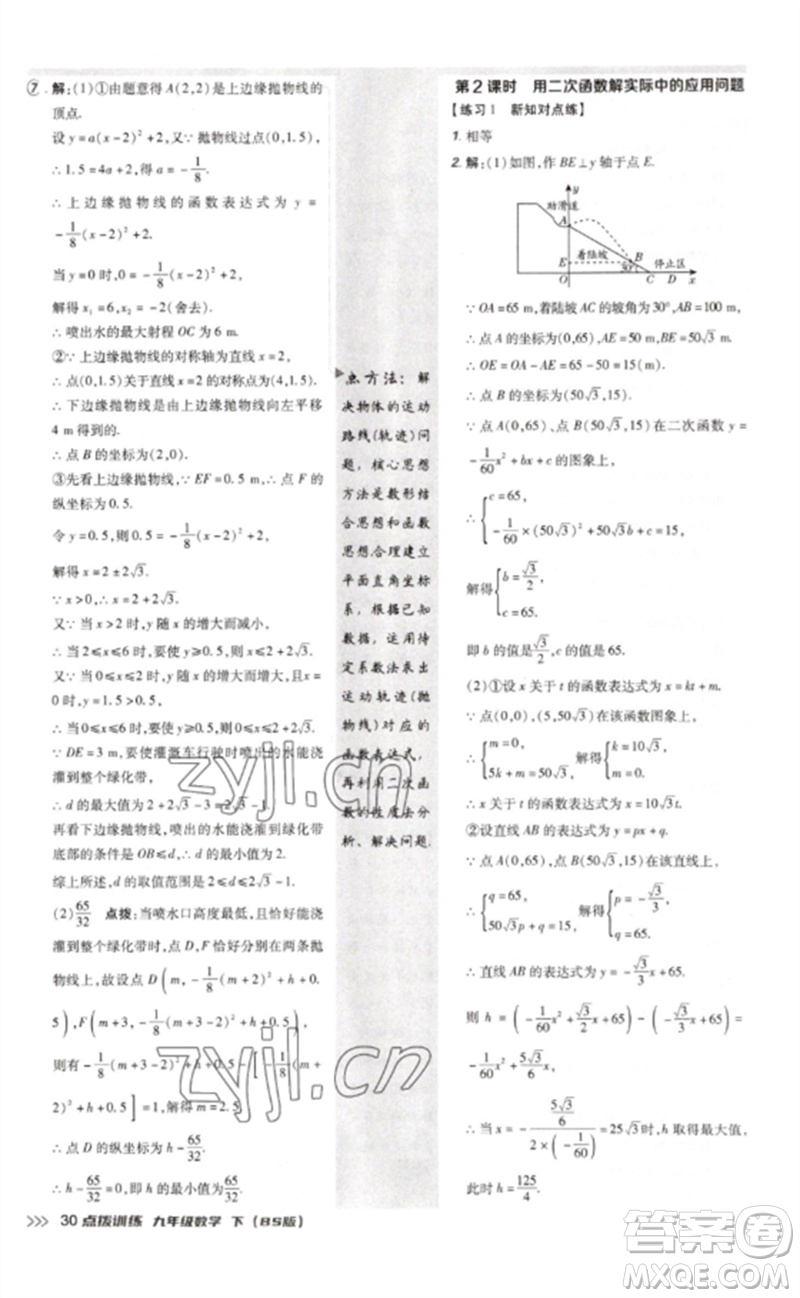 ⑦ 解:(1)①由题意得A(2,2)是上边缘抛物线的
顶点.
设y=a(x-2)²+2.∵抛物线过点(0,1.5),
∴1.5=4a+2,得a=-1/8.
∴上边缘抛物线的函数表达式为y=
-1/8(x-2)²+2.
当y=0时,0=-1/8(x-2)²+2,
解得x₁=6,x₂=-2(舍去).
∴喷出水的最大射程OC为6 m.
②∵上边缘抛物线的对称轴为直线x=2,
∴点(0,1.5)关于直线x=2的对称点为(4,1.5).
∴下边缘抛物线是由上边缘抛物线向左平移
4 m得到的.
∴点B的坐标为(2,0).
③先看上边缘抛物线,∵EF=0.5,∴点F的
纵坐标为0.5.
令y=0.5,则0.5=-1/8(x-2)²+2,
解得x=2±2√3.
∵x>0,∴x=2+2√3.
又∵当x>2时,y随x的增大而减小,
∴当2≤x≤6时,y≥0.5,则x≤2+2√3.
又∵当0≤x≤2时,y随x的增大而增大,
且当x=0时,y=1.5>0.5,
∴当0≤x≤6时,要使y≥0.5,则0≤x≤2+2√3.
∵DE=3,灌溉车行驶时喷出的水能浇
灌到整个绿化带,
∴d的最大值为2+2√3-3=2√3-1.
再看下边缘抛物线,喷出的水能浇灌到绿化带
底部的条件是OB≤d,∴d的最小值为2.
综上所述,d的取值范围是2≤d≤2√3-1.
(2)65/32 点拨:当喷水口高度最低,且恰好能浇
灌到整个绿化带时,点D,F恰好分别在两条抛
物线上,故设点D(m,-1/8(m+2)²+h+0.
5),F(m+3,-1/8(m+3-2)²+h+0.5),
则有-1/8(m+3-2)²+h+0.5-[-1/8(m+
2)²+h+0.5]=1,解得m=2.5.
∴点D的纵坐标为h-65/32.
∴h-65/32=0.∴h的最小值为65/32.
点方法:解
决物体的运动
路线(轨迹)问
题,核心思想
方法是数形结
合思想和函数
思想,合理建立
平面直角坐标
系,根据已知
数据,运用待
定系数法表出
运动轨迹(抛
物线)对应的
函数表达式,
再利用二次函
数的性质分
析、解决问题.
第2课时 用二次函数解实际中的应用问题
【练习1 新知对点练】
1. 相等
2. 解:(1)如图,作BE⊥y轴于点E.
y
助滑道
A
B
E 着陆坡 30° 停止区
O C D x
∵OA=65 m,着陆坡AC的坡角为30°,AB=100 m,
∴点A的坐标为(0,65),AE=50 m,BE=50√3 m.
∴OE=OA-AE=65-50=15(m).
∴点B的坐标为(50√3,15).
∵点A(0,65)、点B(50√3,15)在二次函数y=
-1/60x²+bx+c的图象上,
∴{c=65, -1/60×(50√3)²+50√3b+c=15,
解得{b=√3/2, c=65.
即b的值是√3/2,c的值是65.
(2)①设x关于t的函数表达式为x=kt+m.
∵点(0,0),(5,50√3)在该函数图象上,
∴{m=0, 5k+m=50√3, 解得{k=10√3, m=0.
∴x关于t的函数表达式为x=10√3t.
②设直线AB的表达式为y=px+q.
∵点A(0,65)、点B(50√3,15)在该直线上,
∴{q=65, 50√3p+q=15, 解得{p=-√3/3, q=65.
∴直线AB的表达式为y=-√3/3x+65,
则h=(-1/60x²+√3/2x+65)-(-√3/3x+65)=
-1/60x²+5√3/6x,
∴当x=-(5√3/6)/(2×(-1/60))=25√3时,h取得最大值,
此时h=125/4.
>>> 30 点拨训练 九年级数学 下(BS版)
zyjl.cn
zyjl.cn
作业精灵
MXQE.COM